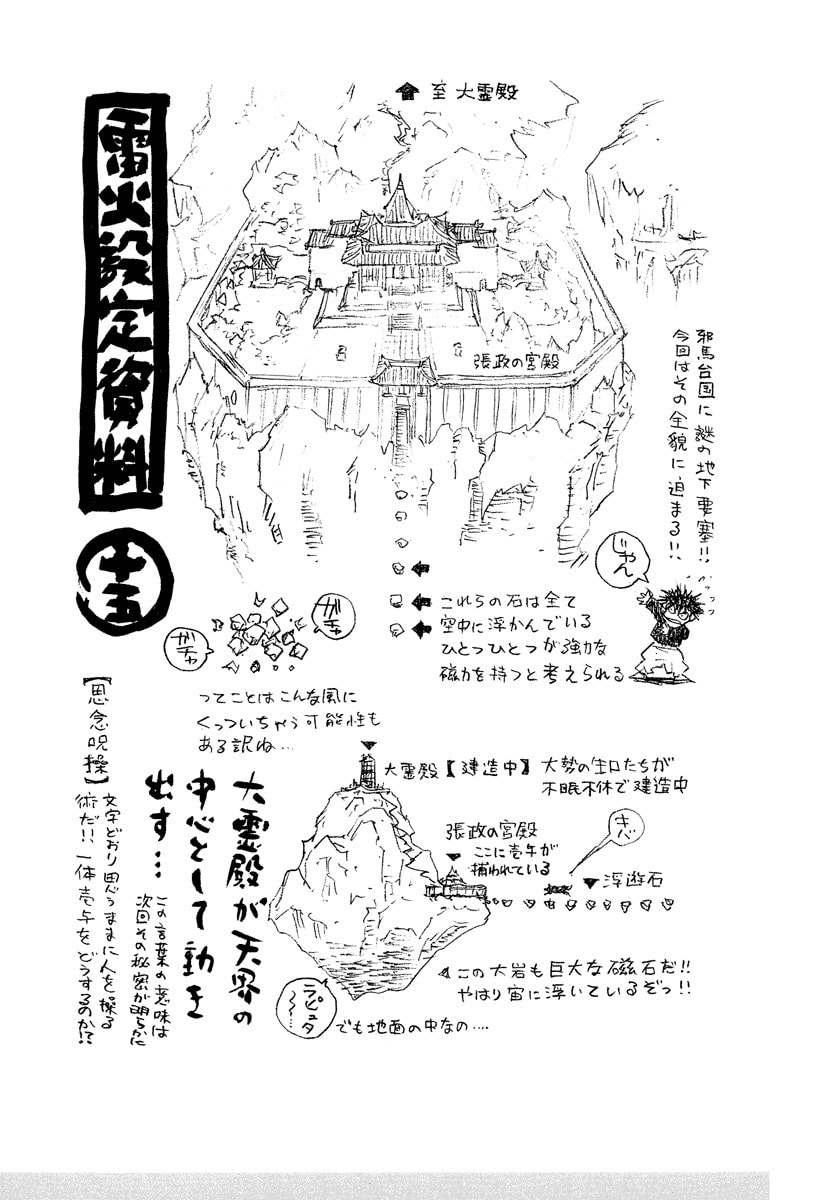 雷火設定資料
十五
至大霊殿
張政の宮殿
邪馬台国に謎の地下要塞!!
今回はその全貌に迫まる!!
じゃん
これらの石は全て
空中に浮かんでいる
ひとつひとつが強力な
磁力を持つと考えられる
ガチャ
ガチャ
ってことはこんな風に
くっついちゃう可能性も
ある訳ね…
大霊殿【建造中】
大勢の生口たちが
不眠不休で建造中
張政の宮殿
ここに壱与が
捕われている
浮遊石
この大岩も巨大な磁石だ!!
やはり宙に浮いているぞっ!!
ラピュタ
でも地面の中なの….
大霊殿が天界の
中心として動き
出す…
この言葉の意味は
次回その秘密が明らかに
【思念呪操】
文字どおり思うままに人を操る
術だ!!一体壱与をどうするのか!?